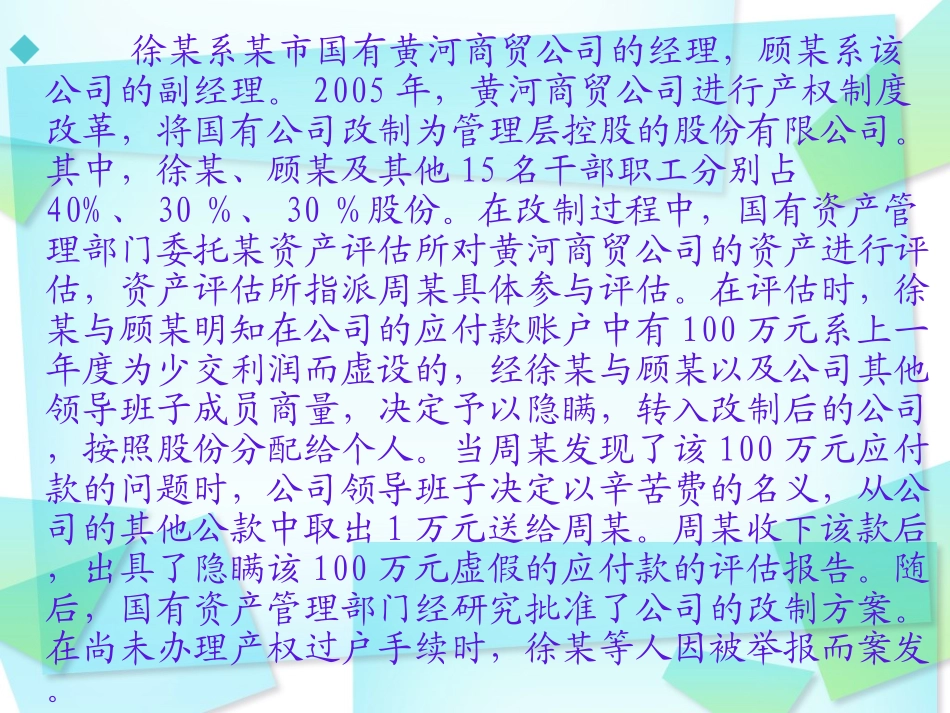 徐某系某市国有黄河商贸公司的经理，顾某系该
公司的副经理。 2005 年，黄河商贸公司进行产权制度
改革，将国有公司改制为管理层控股的股份有限公司。
其中，徐某、顾某及其他 15 名干部职工分别占
40%、 30 %、 30 %股份。在改制过程中，国有资产管
理部门委托某资产评估所对黄河商贸公司的资产进行评
估，资产评估所指派周某具体参与评估。在评估时，徐
某与顾某明知在公司的应付款账户中有 100 万元系上一
年度为少交利润而虚设的，经徐某与顾某以及公司其他
领导班子成员商量，决定予以隐瞒，转入改制后的公司
，按照股份分配给个人。当周某发现了该 100 万元应付
款的问题时，公司领导班子决定以辛苦费的名义，从公
司的其他公款中取出 1 万元送给周某。周某收下该款后
，出具了隐瞒该 100 万元虚假的应付款的评估报告。随
后，国有资产管理部门经研究批准了公司的改制方案。
在尚未办理产权过户手续时，徐某等人因被举报而案发
。